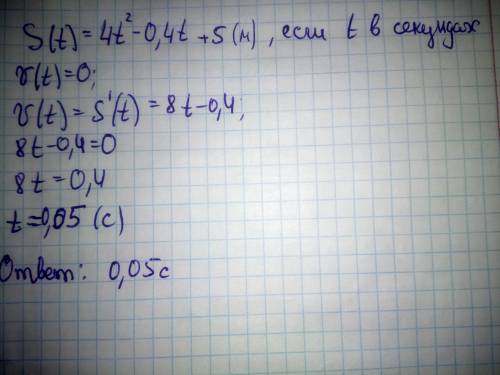 S(t) = 4t² - 0,4t + 5 (м), если t в секундах
v(t) = 0;
v(t) = S'(t) = 8t - 0,4;
8t - 0,4 = 0
8t = 0,4
t = 0,05 (с)
Ответ: 0,05с